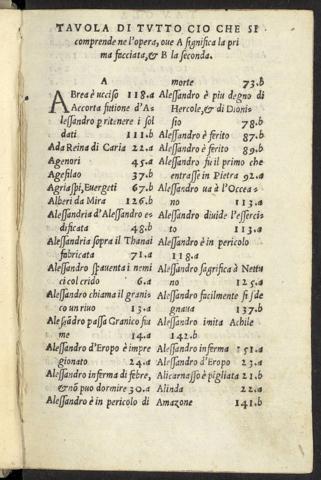 TAVOLA DI TVTTO CIO CHE SI
comprende ne l'opera, oue A significa la pri
ma facciata, & B la seconda.
A
ABrea è ucciso 118.a
Accorta fintione d'A-
lessandro p ritenere i sol
dati 111.b
Ada Reina di Caria 22.a
Agenori 45.a
Agesilao 37.b
Agriaspi, Euergeti 67.b
Alberi da Mira 126.b
Alessandria d'Alessandro e-
dificata 48.b
Alessandria sopra il Thanai
fabricata 71.a
Alessandro spauenta i nemi
ci col crido 6.a
Alessandro chiama il granis
co un riuo 13.a
Alessãdro passa Granico fiu
me 14.a
Alessandro d'Eropo è impre
gionato 24.a
Alessandro inferma di febre,
& nõ puo dormire 30.a
Alessandro è in pericolo di
morte 73.b
Alessandro è piu degno di
Hercole, & di Dioni-
sio 78.b
Alessandro è ferito 87.b
Alessandro è ferito 89.b
Alessandro fu il primo che
entrasse in Pietra 92.a
Alessandro ua à l'Ocea-
no 113.a
Alessandro diuide l'esserci-
to 113.a
Alessandro è in pericolo
118.a
Alessandro sagrifica à Nettu
no 125.a
Alessandro facilmente si sde
gnaua 137.b
Alessandro imita Achile
142.b
Alessandro inferma 151.a
Alessandro d'Eropo 23.a
Alicarnasso è pigliata 21.b
Alinda 22.a
Amazone 141.b